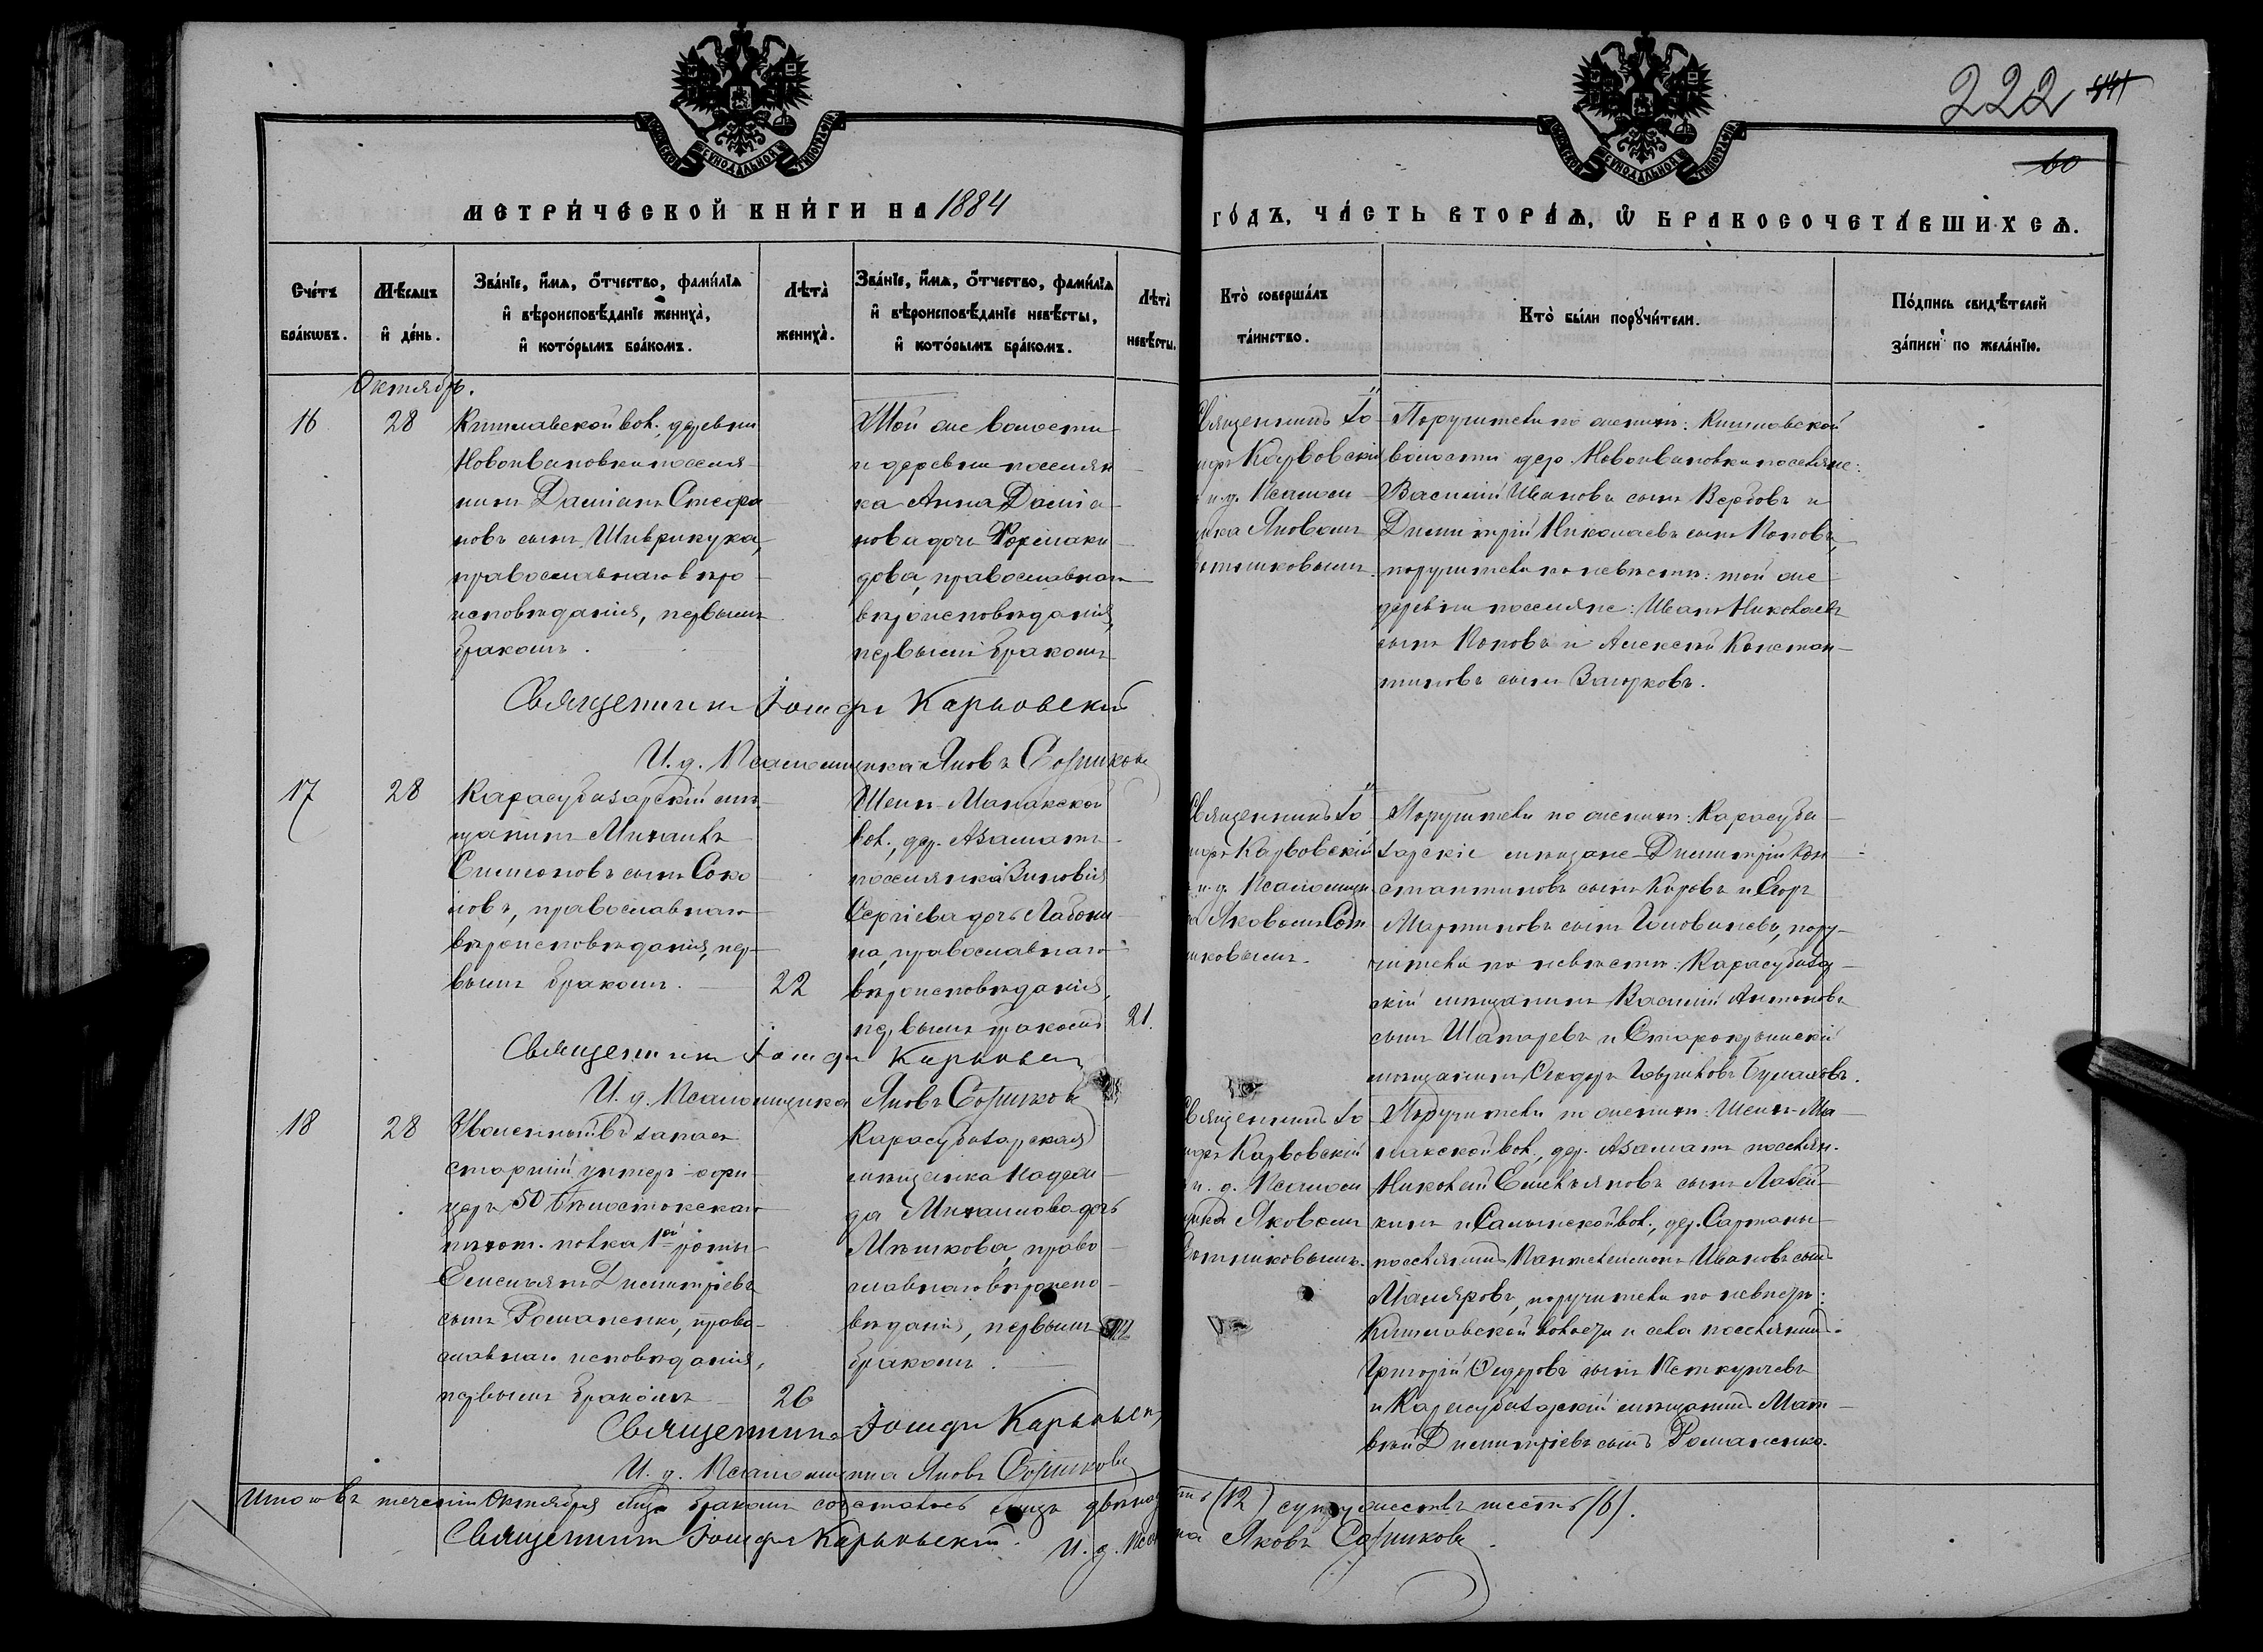 222
60
МЕТРИЧЕСКОЙ КНИГИ НА 1884
ГОДЪ, ЧАСТЬ ВТОРАЯ, Ѡ БРАКОСОЧЕТАВШИХСЯ.
Счетъ бракѡвъ.
Мѣсяцъ и день.
Званіе, имя, отчество, фамилія и вѣроисповѣданіе жениха, и которымъ бракомъ.
Лѣта жениха.
Званіе, имя, отчество, фамилія и вѣроисповѣданіе невѣсты, и которымъ бракомъ.
Лѣта невѣсты.
Кто совершалъ таинство.
Кто были поручители.
Подпись свидѣтелей записи по желанію.
Октябрь.
16
28
Кишлавской вол., деревни
Новоивановки поселя-
нинъ Даміанъ Стефа
новъ сынъ
православнаго вѣро
исповѣданія, первымъ
бракомъ.
Той же волости
и деревни поселян
ка Анна Даміа-
нова дочь
православнаго
вѣроисповѣданія,
первымъ бракомъ
Священникъ Іо
сифъ
и. д. Псалом
щика Яковомъ
Сотниковымъ.
Поручители по женихѣ: Кишлавской
волости дер. Новоивановки поселяне:
Василій Ивановъ сынъ Вербовъ и
Димитрій Николаевъ сынъ Поповъ,
поручители по невѣстѣ: той же
деревни поселяне: Иванъ Николаевъ
сынъ Поповъ и Алексѣй Констан-
тиновъ сынъ
Священникъ Іосифъ
И. д. Псаломщика Яковъ Сотниковъ
17
28
Карасубазарскій мѣ-
щанинъ Михаилъ
Симеоновъ сынъ Соко
ловъ, православнаго
вѣроисповѣданія, пер-
вымъ бракомъ.
22
Шейхъ-Монакской
вол., дер. Азаматъ
поселянка Зиновія
Сергіева дочь
православнаго
вѣроисповѣданія,
первымъ бракомъ
21.
Священникъ Іо
сифъ
и. д. Псаломщи
ка Яковомъ Сот
никовымъ.
Поручители по женихѣ: Карасуба-
зарскіе мѣщане Димитрій Кон-
стантиновъ сынъ и Егоръ
Мартиновъ сынъ пору-
чители по невѣстѣ: Карасубазар-
скій мѣщанинъ Василій Антоновъ
сынъ и Старокрымскій
мѣщанинъ Ѳеодоръ
Священникъ Іосифъ
И. д. Псаломщика Яковъ Сотниковъ
18
28
Уволенный въ запасъ
старшій унтеръ-офи-
церъ 50 Бѣлостокскаго
пѣхот. полка 1ой роты
Емельянъ Димитріевъ
сынъ Романенко, право-
славнаго исповѣданія,
первымъ бракомъ
26
Карасубазарская
мѣщанка Надеж-
да Михаилова дочь
Мѣшкова, право-
славнаго вѣроиспо-
вѣданія, первымъ
бракомъ.
Священникъ Іо
сифъ
и. д. Псалом
щика Яковомъ
Сотниковымъ.
Поручители по женихѣ: Шейхъ-Мо-
накской вол., дер. Азаматъ поселян.
Николай Емельяновъ сынъ
и Салынской вол., дер. Сартаны
поселянинъ Пантелеимонъ Ивановъ сынъ
поручители по невѣстѣ:
Кишлавской волости и села поселянинъ
Григорій Ѳедоровъ сынъ
и Карасубазарскій мѣщанинъ Мат-
вѣй Димитріевъ сынъ Романенко.
Священникъ Іосифъ
И. д. Псаломщика Яковъ Сотниковъ
Итого въ теченіи Октября бракомъ сочеталось лицъ двѣнадцать (12) супружествъ шесть (6).
Священникъ Іосифъ И. д. Яковъ Сотниковъ.